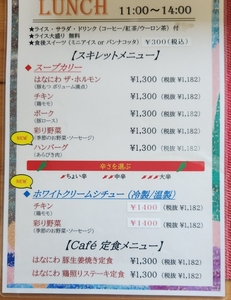 LUNCH 11:00～14:00
★ライス・サラダ・ドリンク(コーヒー/紅茶/ウーロン茶) 付
★ライス大盛り 無料
★食後スイーツ(ミニアイス or パンナコッタ) ¥300(税込)
【スキレットメニュー】
◆スープカリー
はなにわ ザ・ホルモン ¥1,300 (税抜 ¥1,182)
(豚モツ・ボリューム満点)
チキン ¥1,300 (税抜 ¥1,182)
(鶏モモ)
ポーク ¥1,300 (税抜 ¥1,182)
(豚ロース)
NEW
彩り野菜 ¥1,300 (税抜 ¥1,182)
(季節のお野菜・ソーセージ)
ハンバーグ ¥1,300 (税抜 ¥1,182)
(あらびき肉)
辛さを選ぶ
ちょい辛 中辛 大辛
NEW
◆ホワイトクリームシチュー (冷製/温製)
チキン ¥1400 (税抜 ¥1,182)
(鶏モモ)
彩り野菜 ¥1400 (税抜 ¥1,182)
(季節のお野菜・ソーセージ)
【Café 定食メニュー】
はなにわ 豚生姜焼き定食 ¥1,300 (税抜 ¥1,182)
はなにわ 鶏照りステーキ定食 ¥1,300 (税抜 ¥1,182)